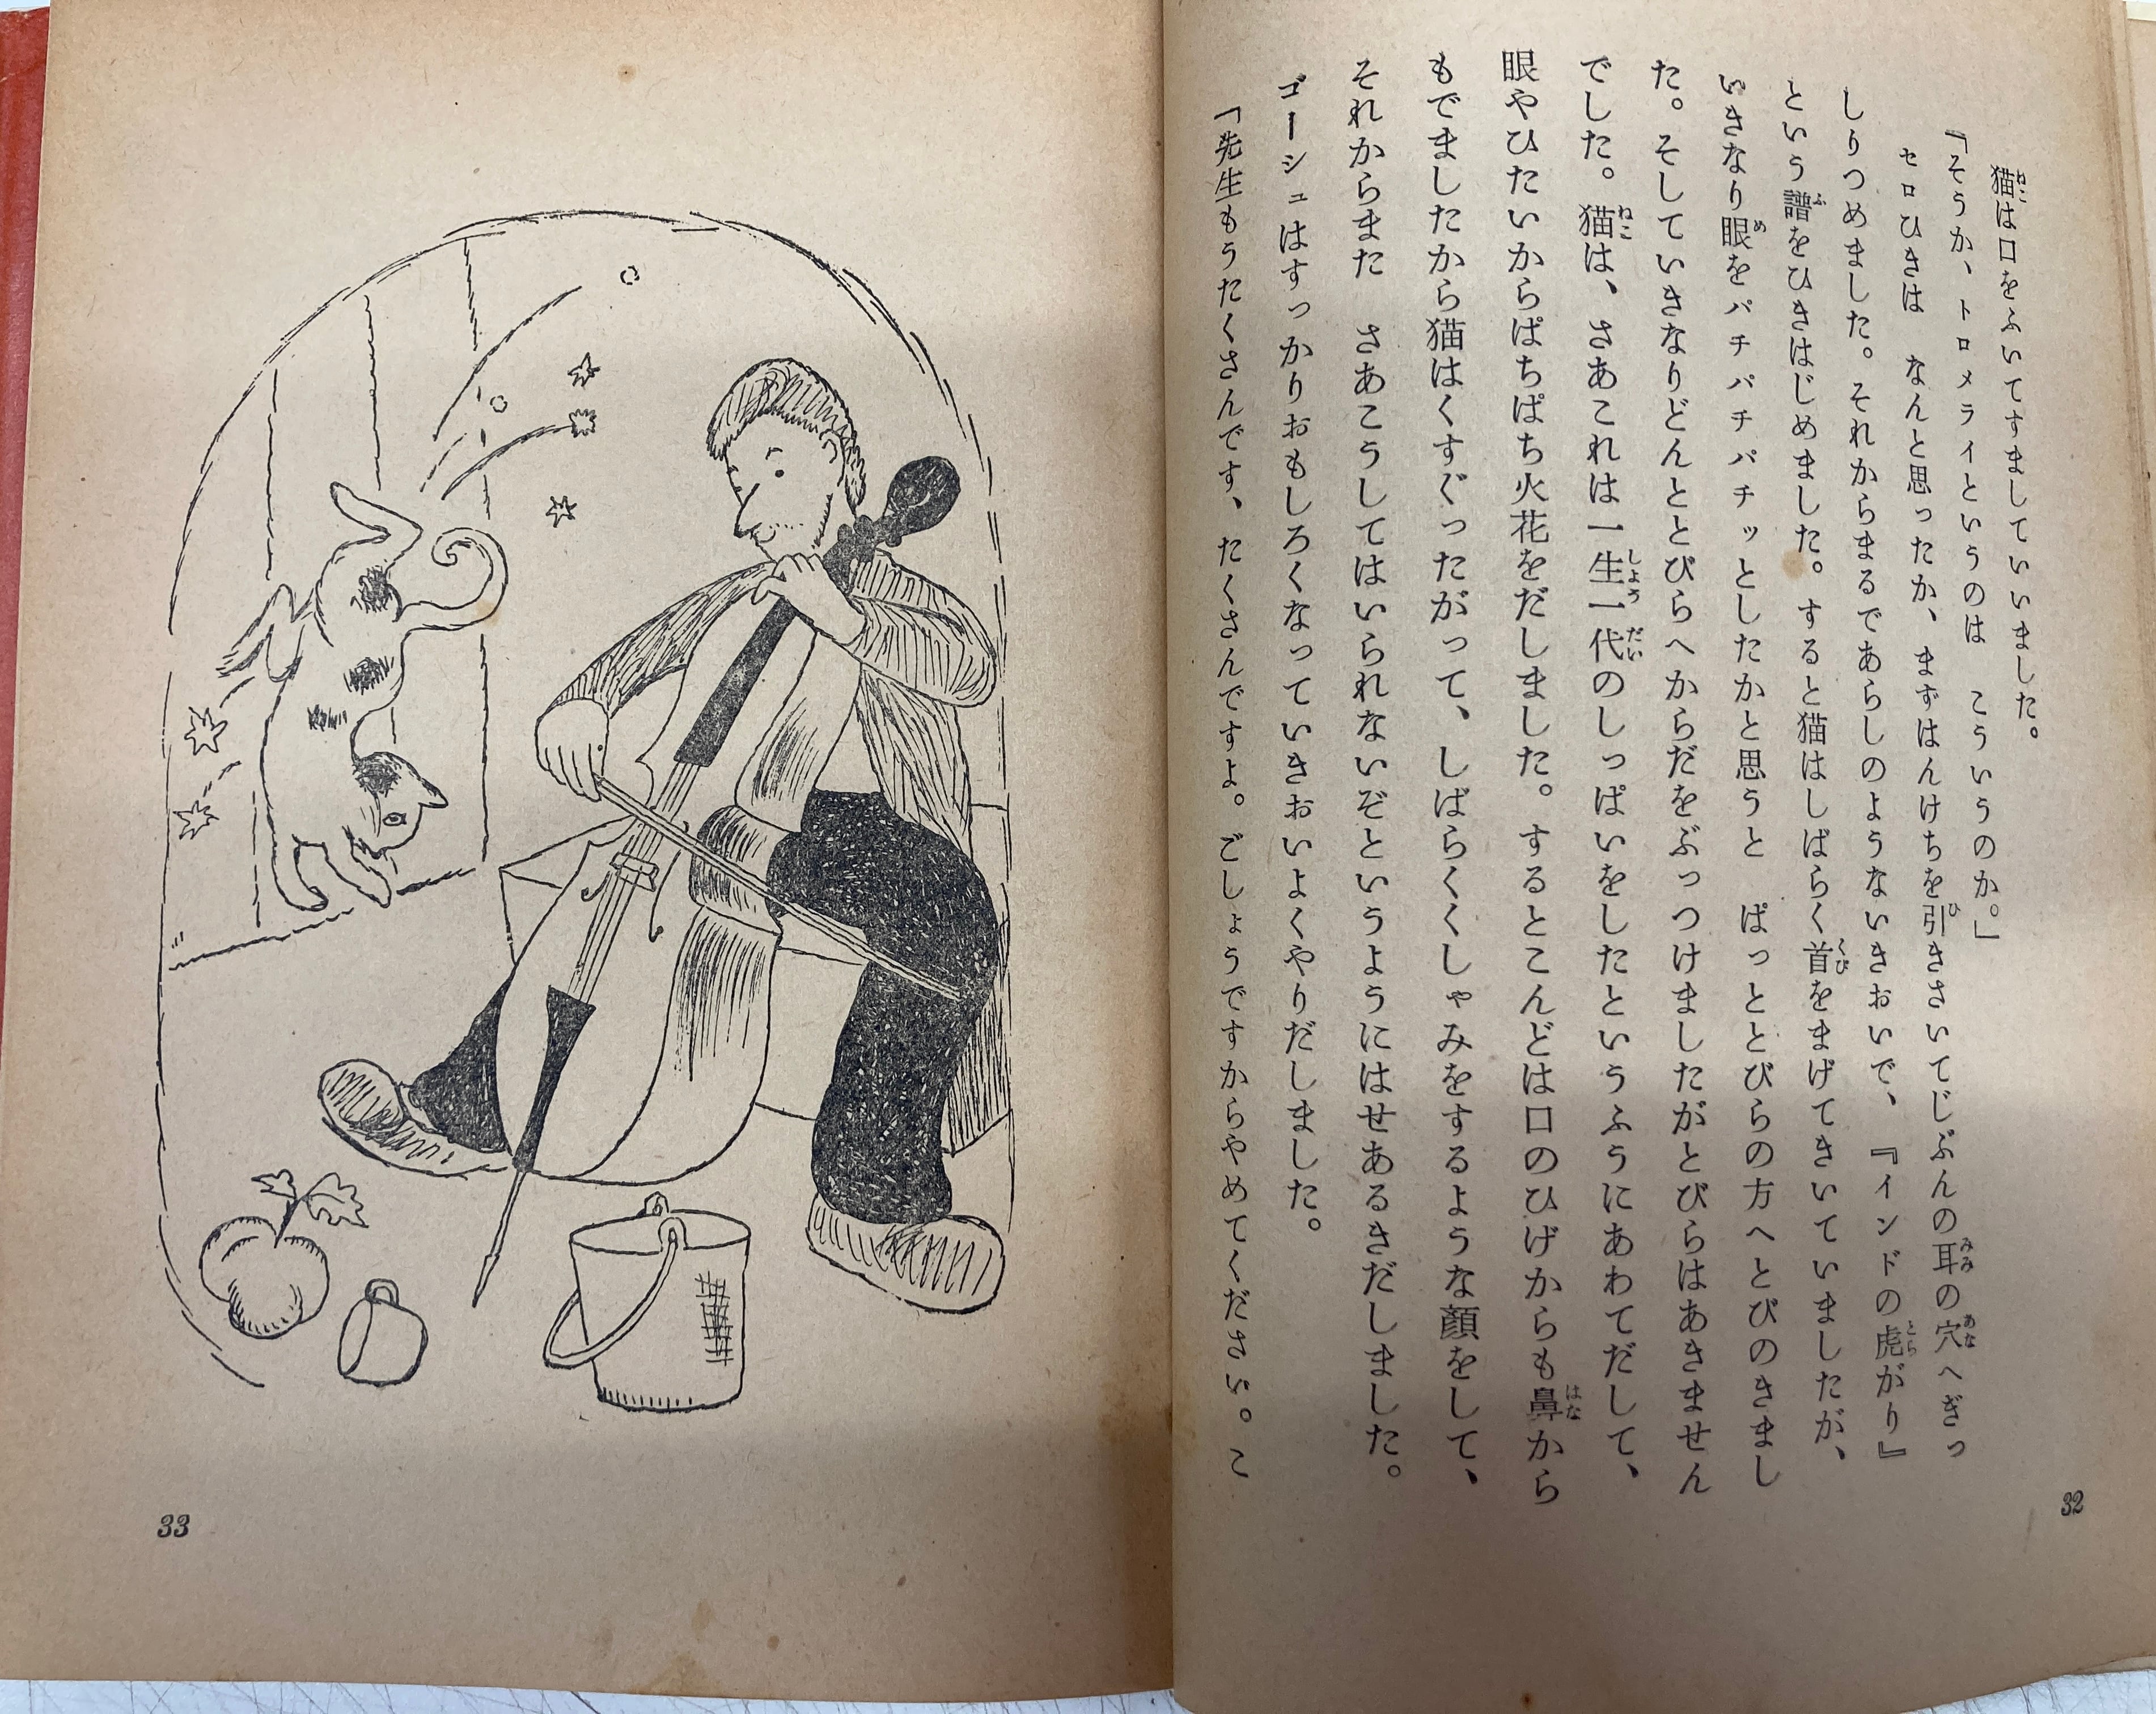 猫は口をふいてすましていいました。
「そうか、トロメライというのは　こういうのか。」
セロひきは　なんと思ったか、まずはんけちを引きさいてじぶんの耳の穴へぎっ
しりつめました。それからまるであらしのようないきおいで、『インドの虎がり』
という譜をひきはじめました。すると猫はしばらく首をまげてきいていましたが、
いきなり眼をパチパチパチッとしたかと思うと　ぱっととびらの方へとびのきまし
た。そしていきなりどんととびらへからだをぶっつけましたがとびらはあきません
でした。猫は、さあこれは一生一代のしっぱいをしたというふうにあわてだして、
眼やひたいからぱちぱち火花をだしました。するとこんどは口のひげからも鼻から
もでましたから猫はくすぐったがって、しばらくくしゃみをするような顔をして、
それからまた　さあこうしてはいられないぞというようにはせあるきだしました。
ゴーシュはすっかりおもしろくなっていきおいよくやりだしました。
「先生もうたくさんです、たくさんですよ。ごしょうですからやめてください。こ
32
33